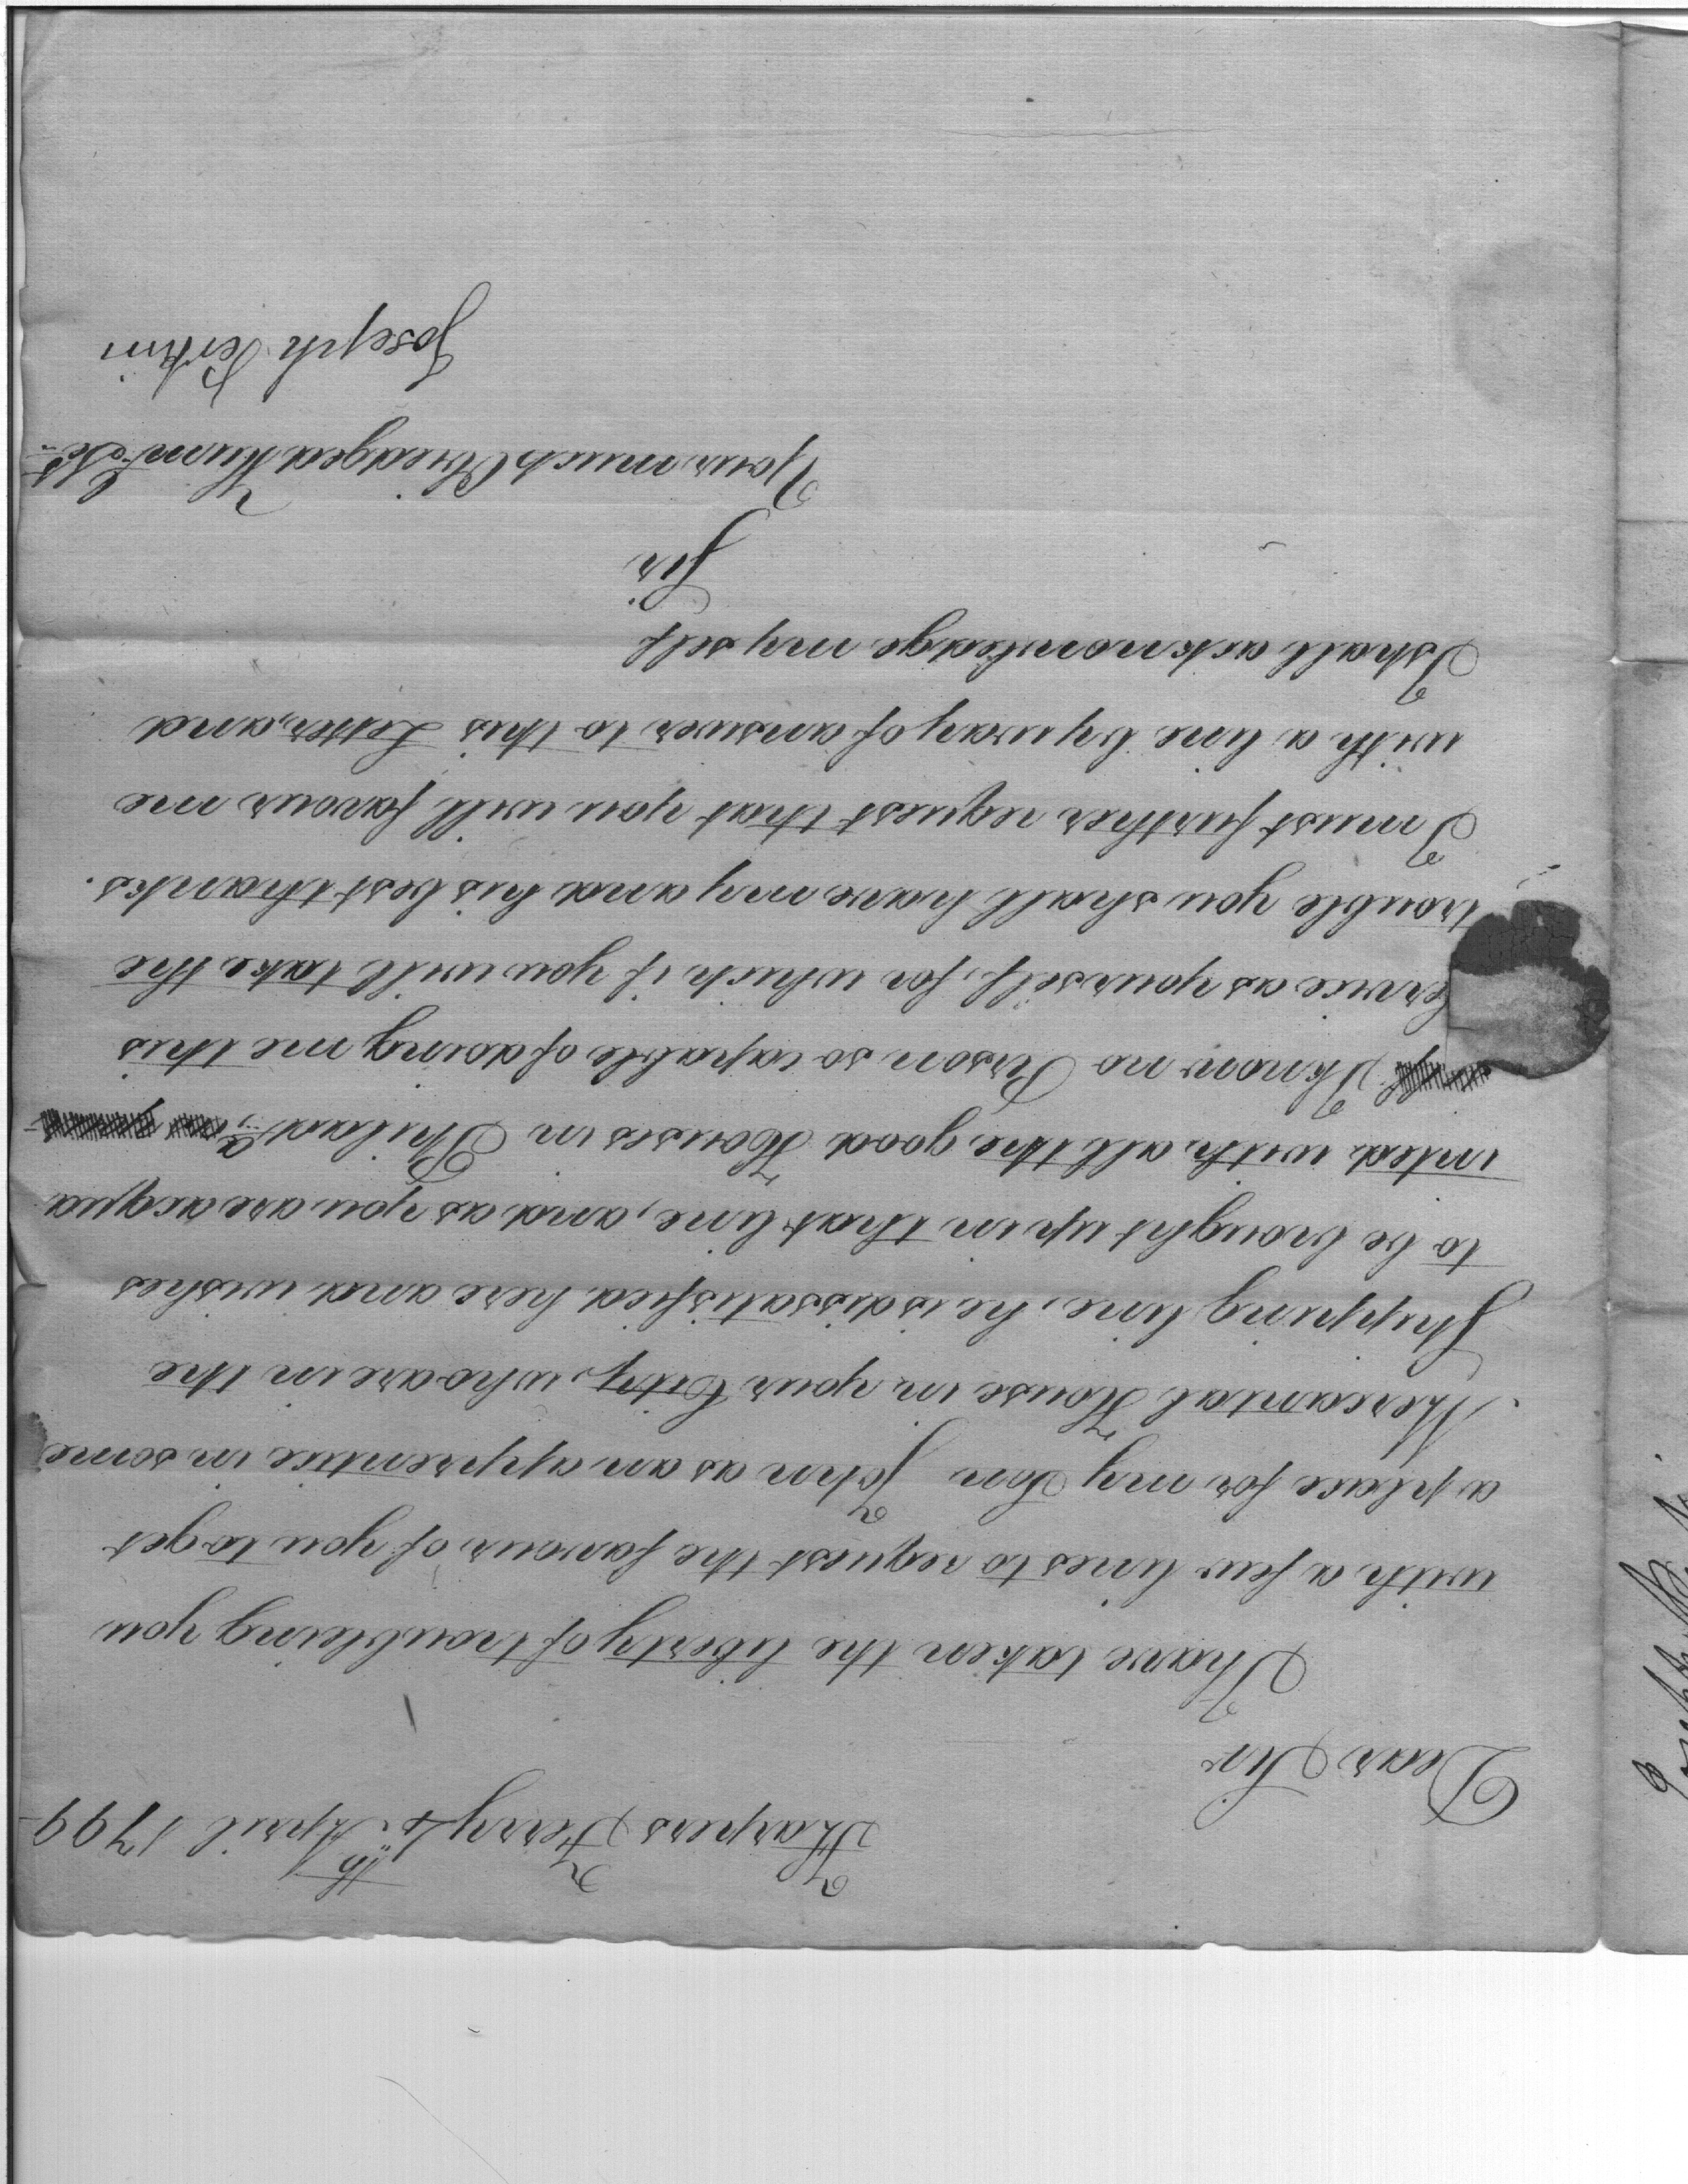 Harpers Ferry 4th April 1799
Dear Sir
I have taken the liberty of troubleing you
with a few lines to request the favour of you to get
a place for my Son John as an apprentice in some
Mercantal House in your City, who are in the
Shipping line, he is dissatisfied here and wishes
to be brought up in that line, and as you are acqua
inted with all the good Houses in Philada,
I know no Person so capable of doing me this
service as yourself, for which if you will take the
trouble you shall have my and his best thanks.
I must further request that you will favour me
with a line by way of answer to this Letter, and
I shall acknowledge my self
Sir
Your much Obledged Hum Set
Joseph Perkin